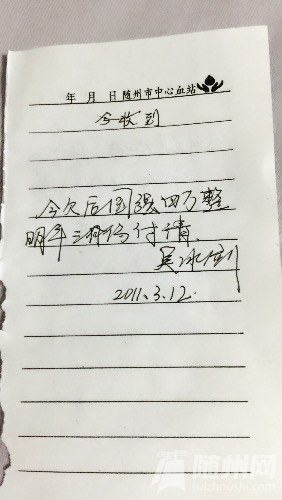 年 月 日 随州市中心血站
今收到
今欠后国强四万整
明年三月份付清.
吴冰
2011.3.12.
随州网
suizhoushi.com